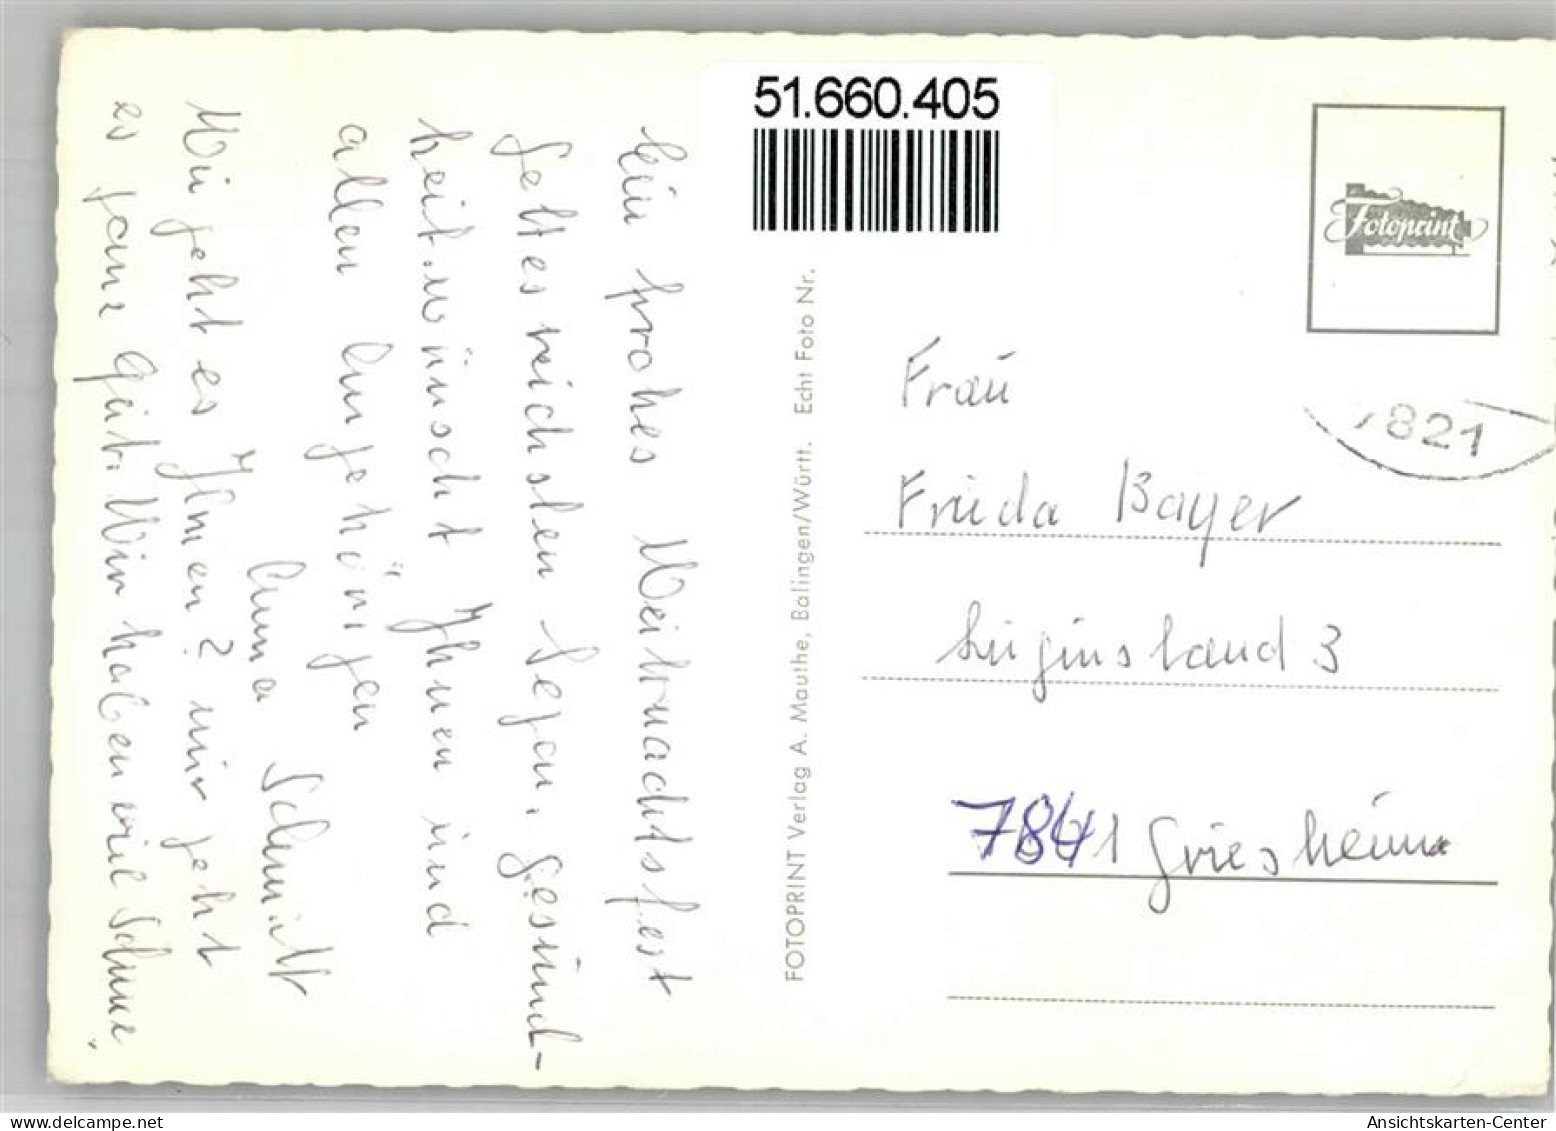 51.660.405
Ein frohes Weihnachtsfest
Gottes reichsten Segen, Gesund-
heit wünscht Ihnen und
allen Angehörigen
Anna Schmidt
Wie geht es Ihnen? mir geht
es ganz gut. Wir haben viel Schnee
FOTOPRINT Verlag A. Mauthe, Balingen/Württ. Echt Foto Nr.
Fotoprint
7821
Frau
Frieda Bayer
Luginsland 3
7841 Griesheim
www.delcampe.net
Ansichtskarten-Center